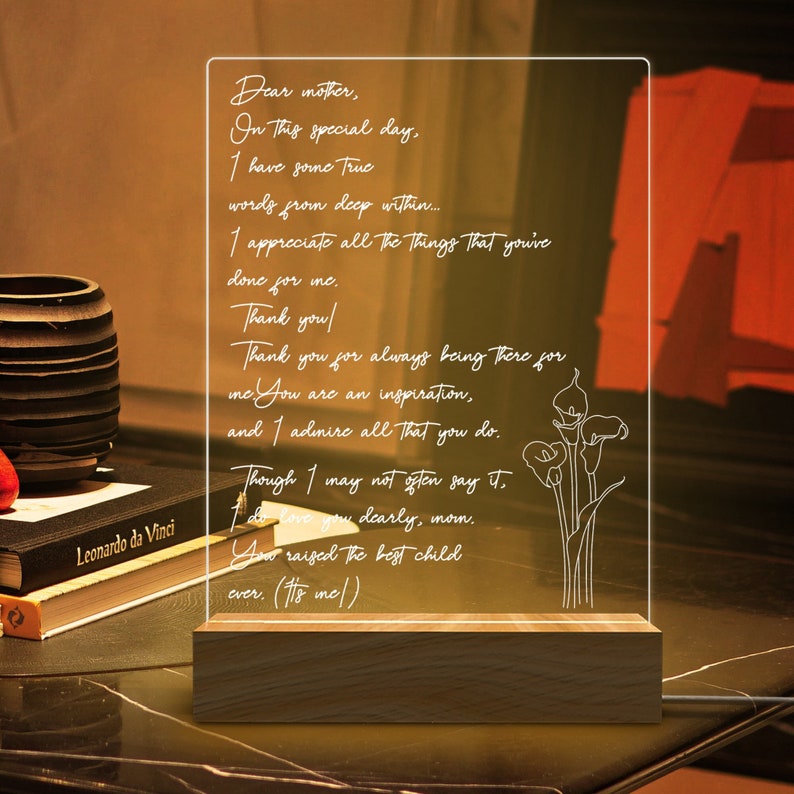 Dear mother,
On this special day,
I have some true
words from deep within...
I appreciate all the things that you've
done for me.
Thank you!
Thank you for always being there for
me.You are an inspiration,
and I admire all that you do.
Though I may not often say it,
I do love you dearly, mom.
You raised the best child
ever. (It's me!)
Leonardo da Vinci